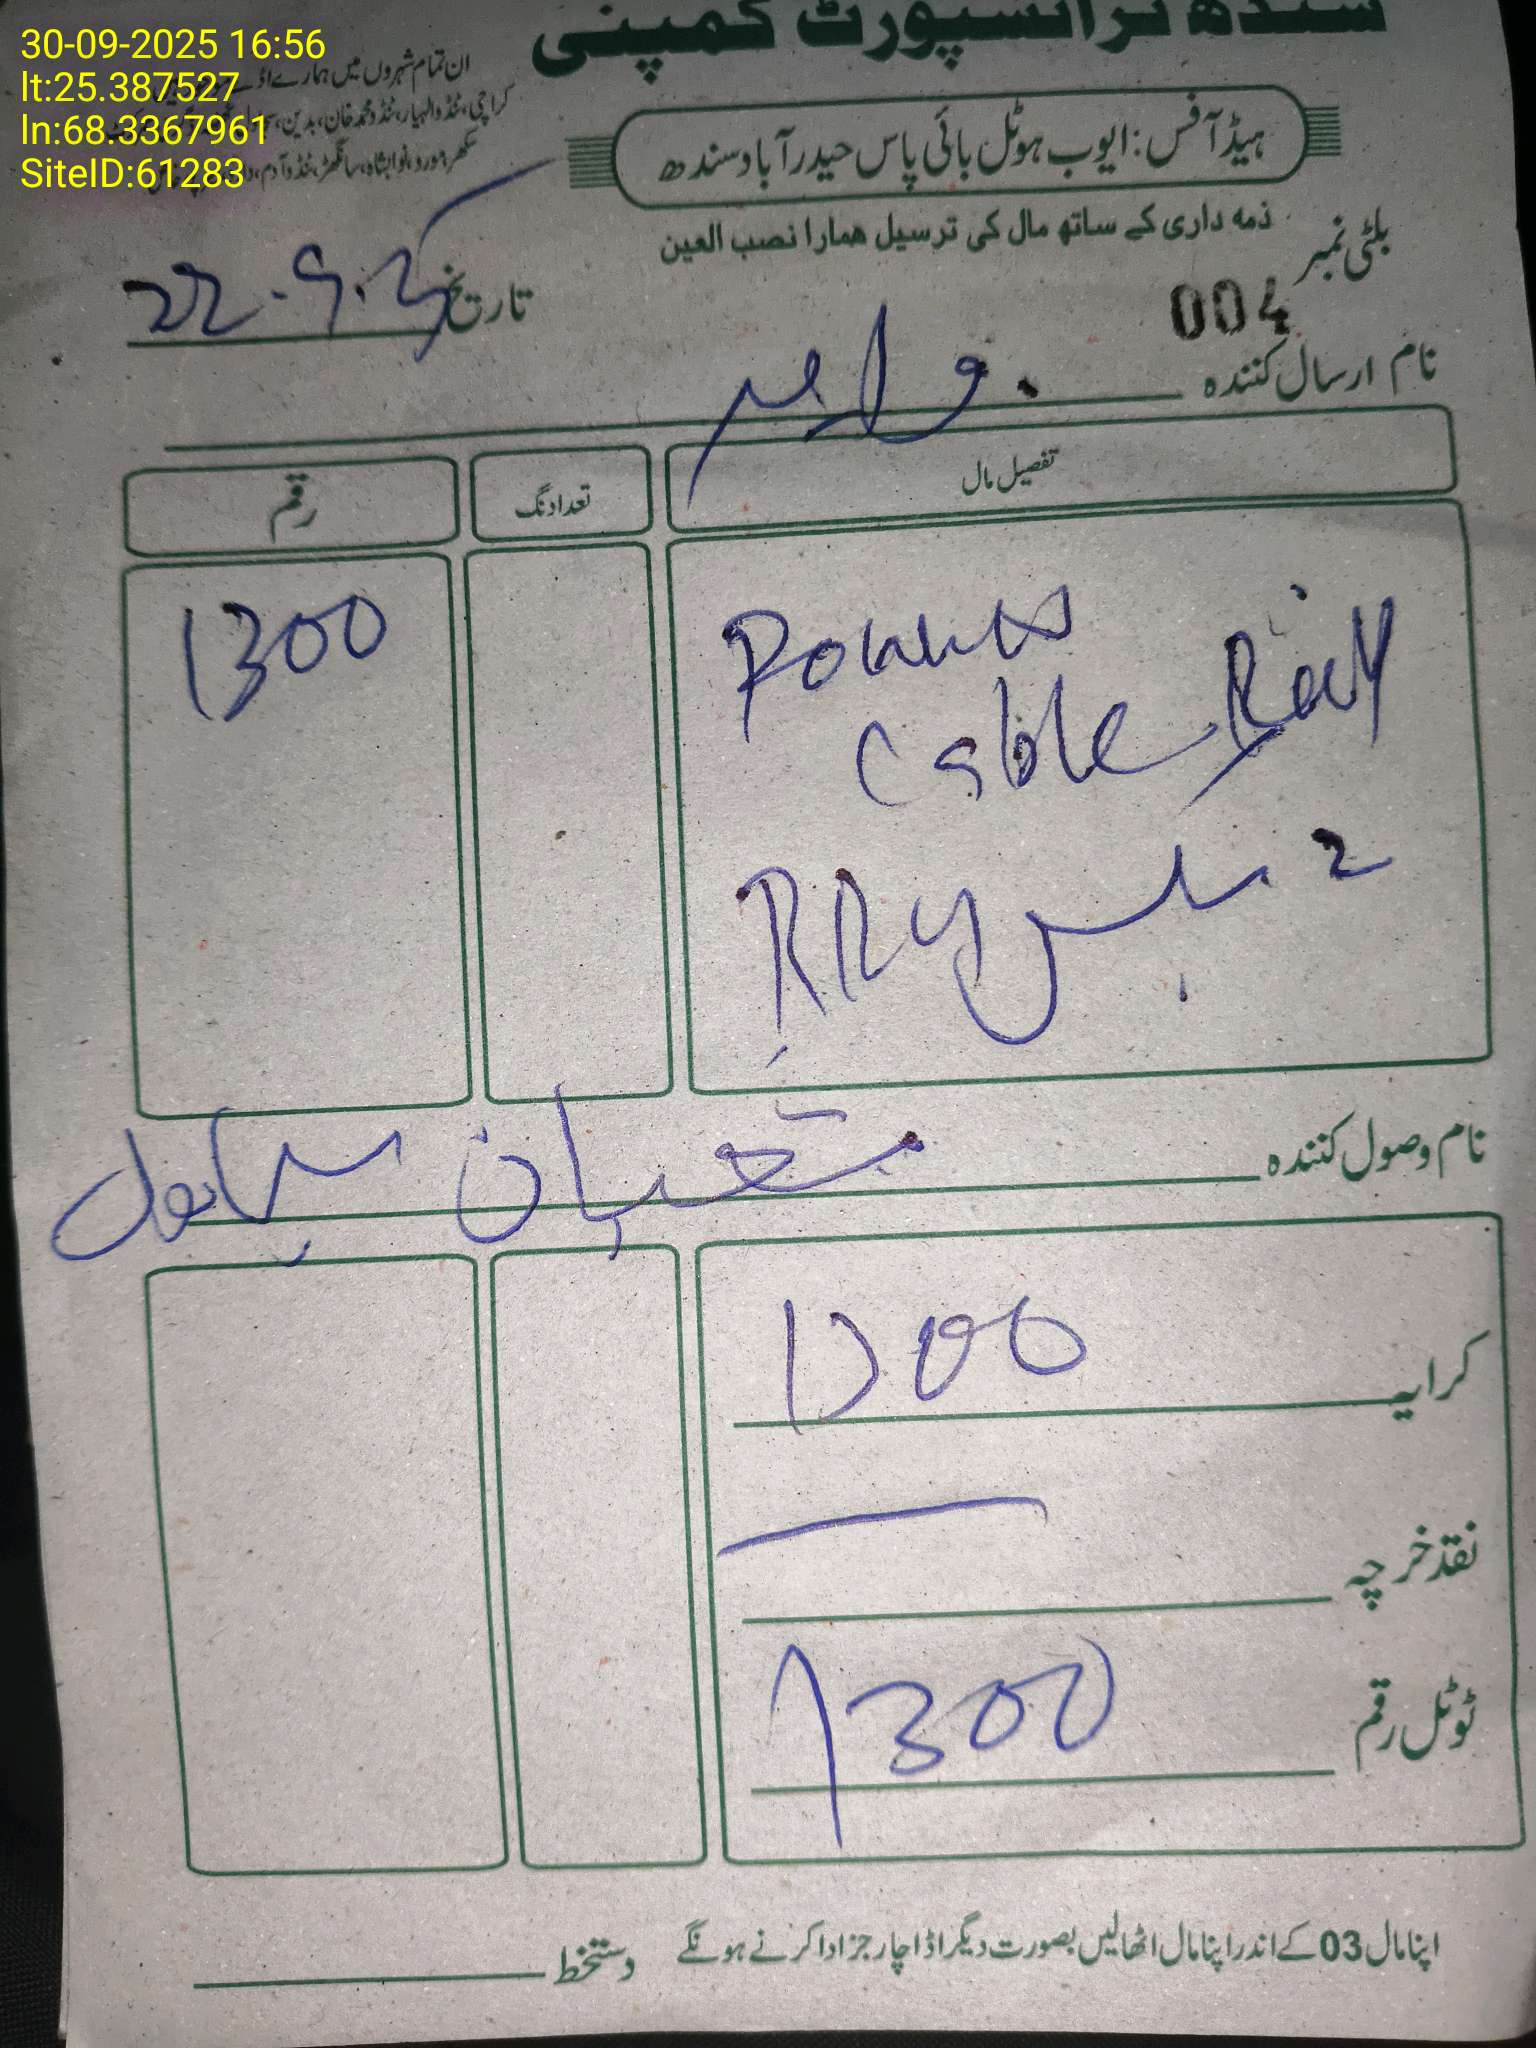 30-09-2025 16:56
lt:25.387527
ln:68.3367961
SiteID:61283
سندھ ٹرانسپورٹ کمپنی
ان تمام شہروں میں ہمارے
کراچی، ٹنڈوالہیار، ٹنڈو محمد خان، بدین،
سکھر، مورو، نوابشاہ، سانگھڑ، ٹنڈوآدم،
ہیڈ آفس: ایوب ہوٹل بائی پاس حیدرآباد سندھ
ذمہ داری کے ساتھ مال کی ترسیل ھمارا نصب العین
بلٹی نمبر 004
تاریخ 22.9.25
نام ارسال کنندہ
تفصیل مال تعداد نگ رقم
Power 1300
Cable
2 بکس RRU
نام وصول کنندہ شعبان سیال
کرایہ 1300
نقد خرچہ
ٹوٹل رقم 1300
اپنا مال 03 کے اندر اپنا مال اٹھالیں بصورت دیگر اڈا چارجز ادا کرنے ہونگے
دستخط